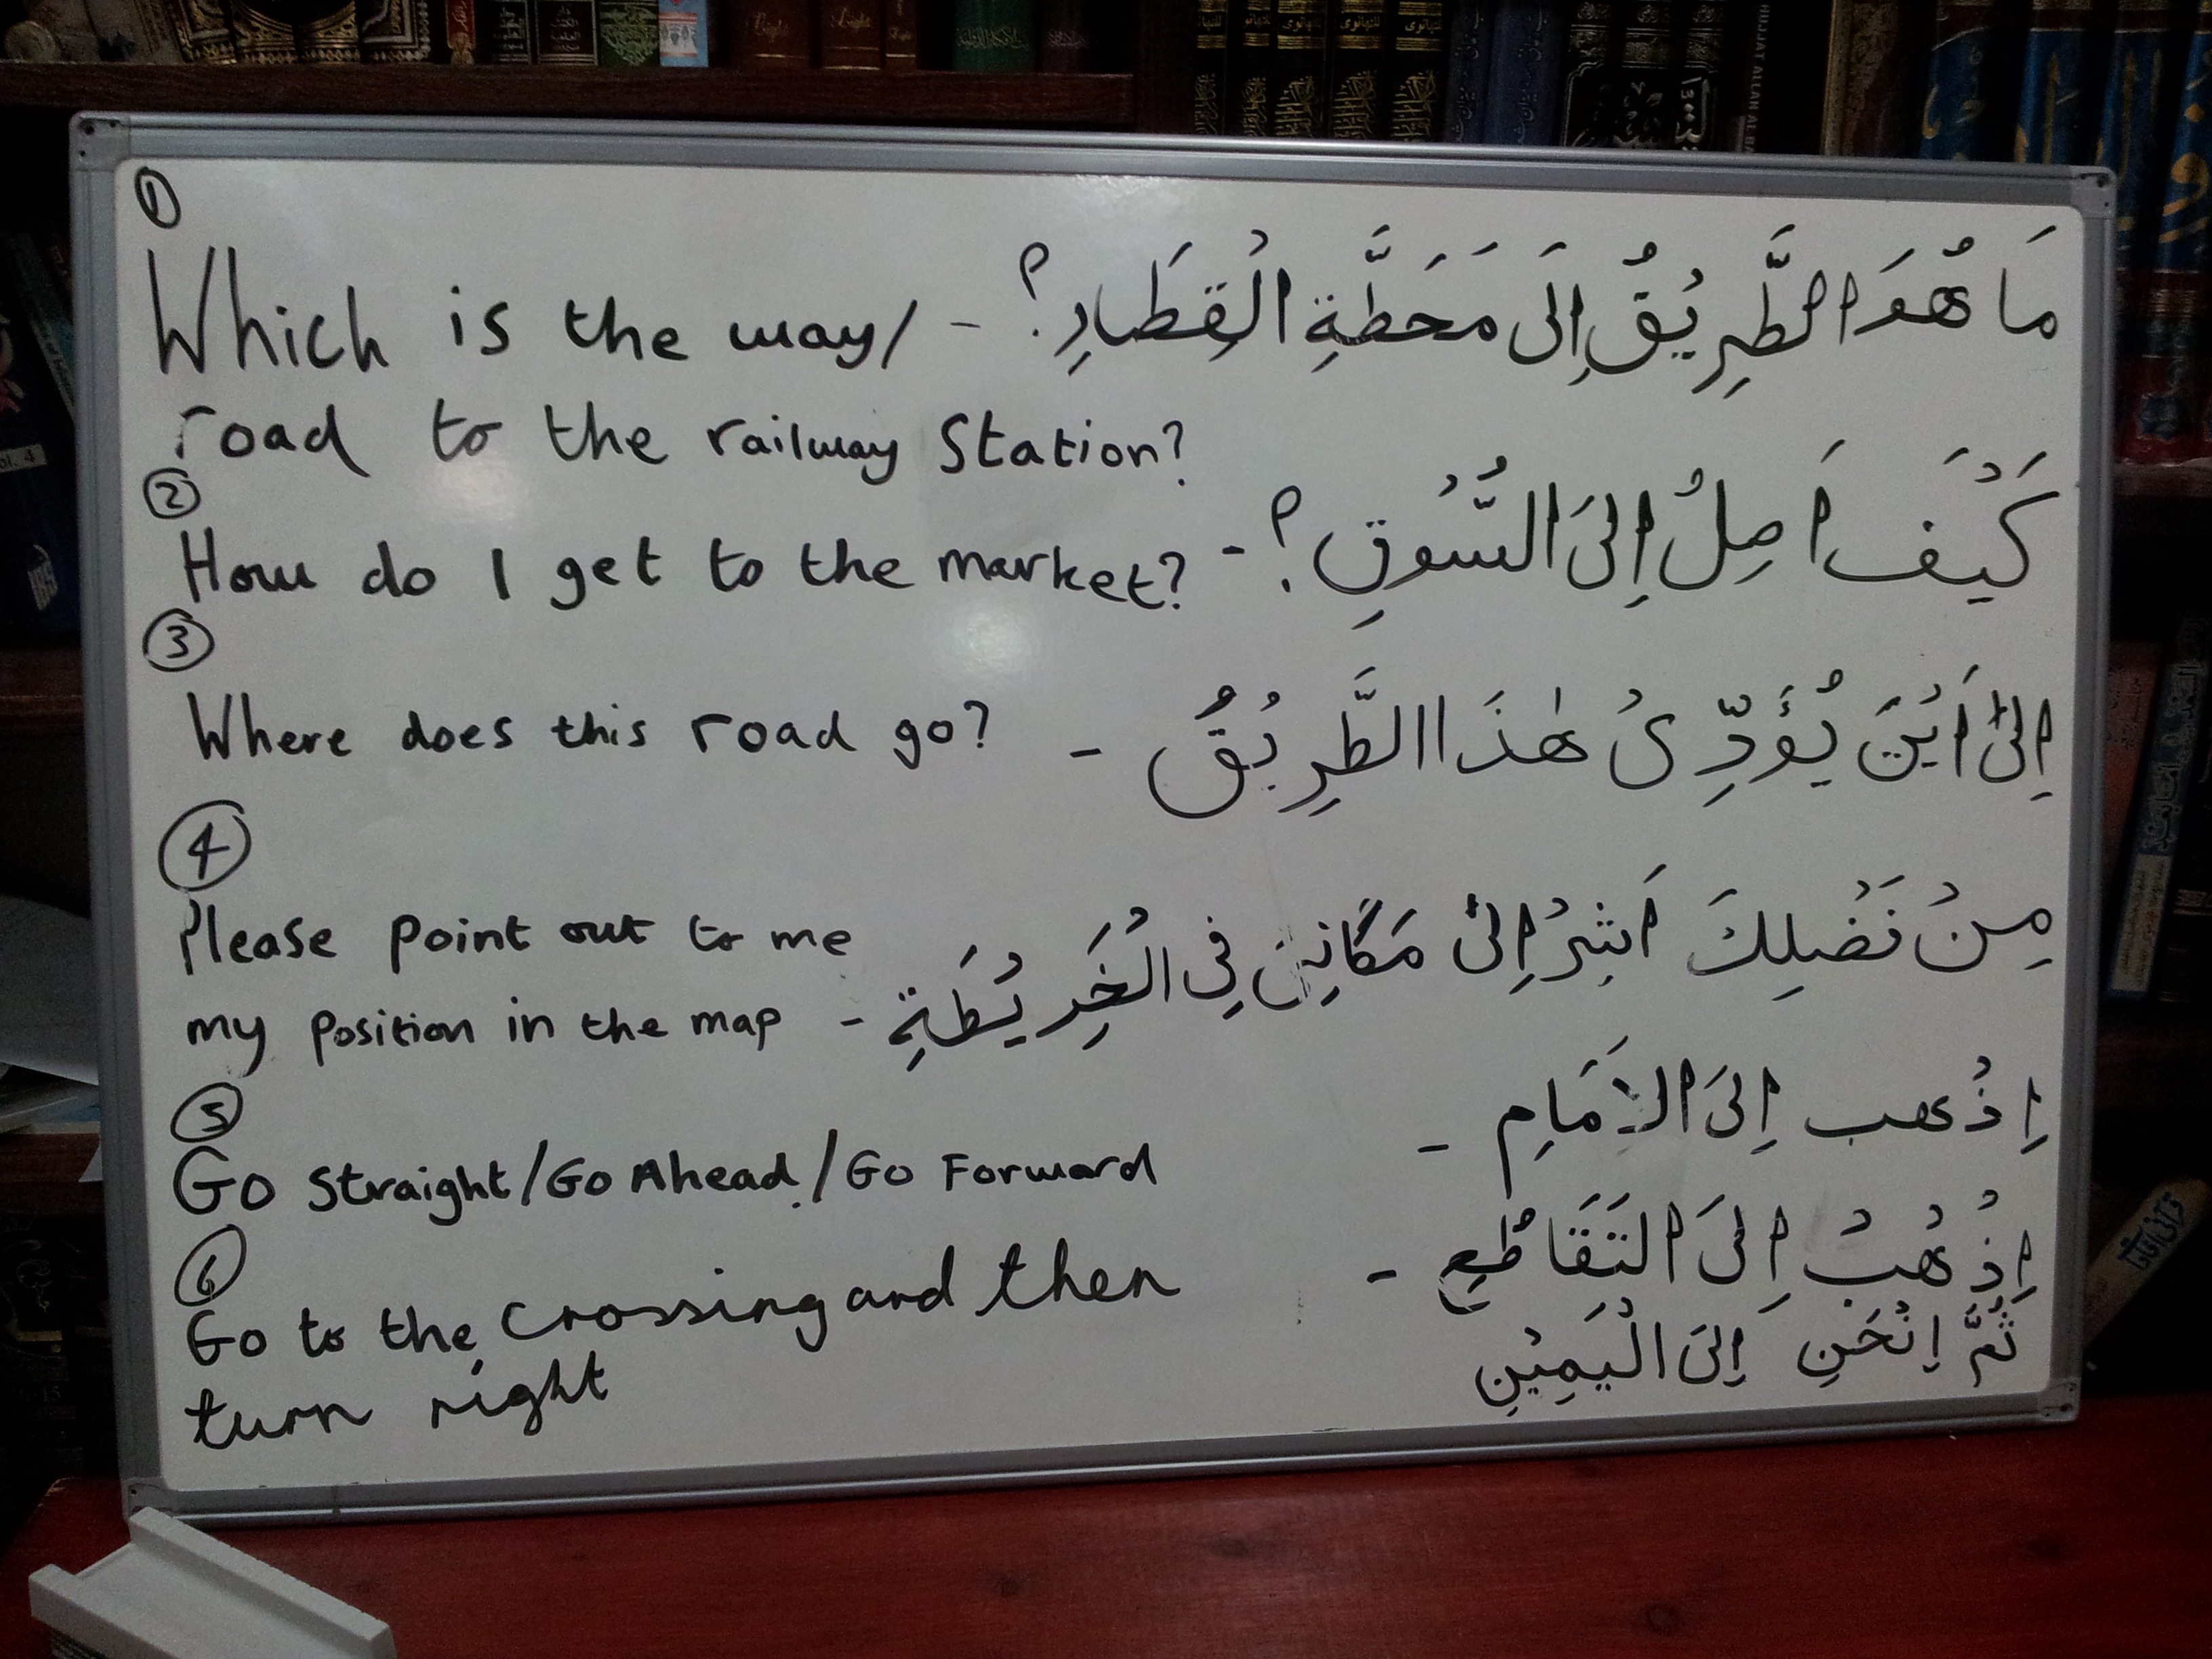 ①
Which is the way/ - مَا هُوَ الطَّرِيْقُ إِلَى مَحَطَّةِ الْقِطَارِ؟
road to the railway Station?
②
How do I get to the market? - كَيْفَ اَصِلُ إِلَى السُّوْقِ؟
③
Where does this road go? - اِلىٰ اَيْنَ يُؤَدِّىْ هٰذَا الطَّرِيْقُ
④
Please point out to me مِنْ فَضْلِكَ اَشِرْ اِلىٰ مَكَانِىْ فِى الْخَرِيْطَةِ
my position in the map -
⑤
اِذْهب اِلىَ الاَمَامِ -
Go Straight/Go Ahead/Go Forward
⑥
اِذْهَبْ اِلىَ التَقَاطُعِ -
Go to the crossing and then
ثُمَّ اِنْحَنِ اِلىَ الْيَمِيْنِ
turn right